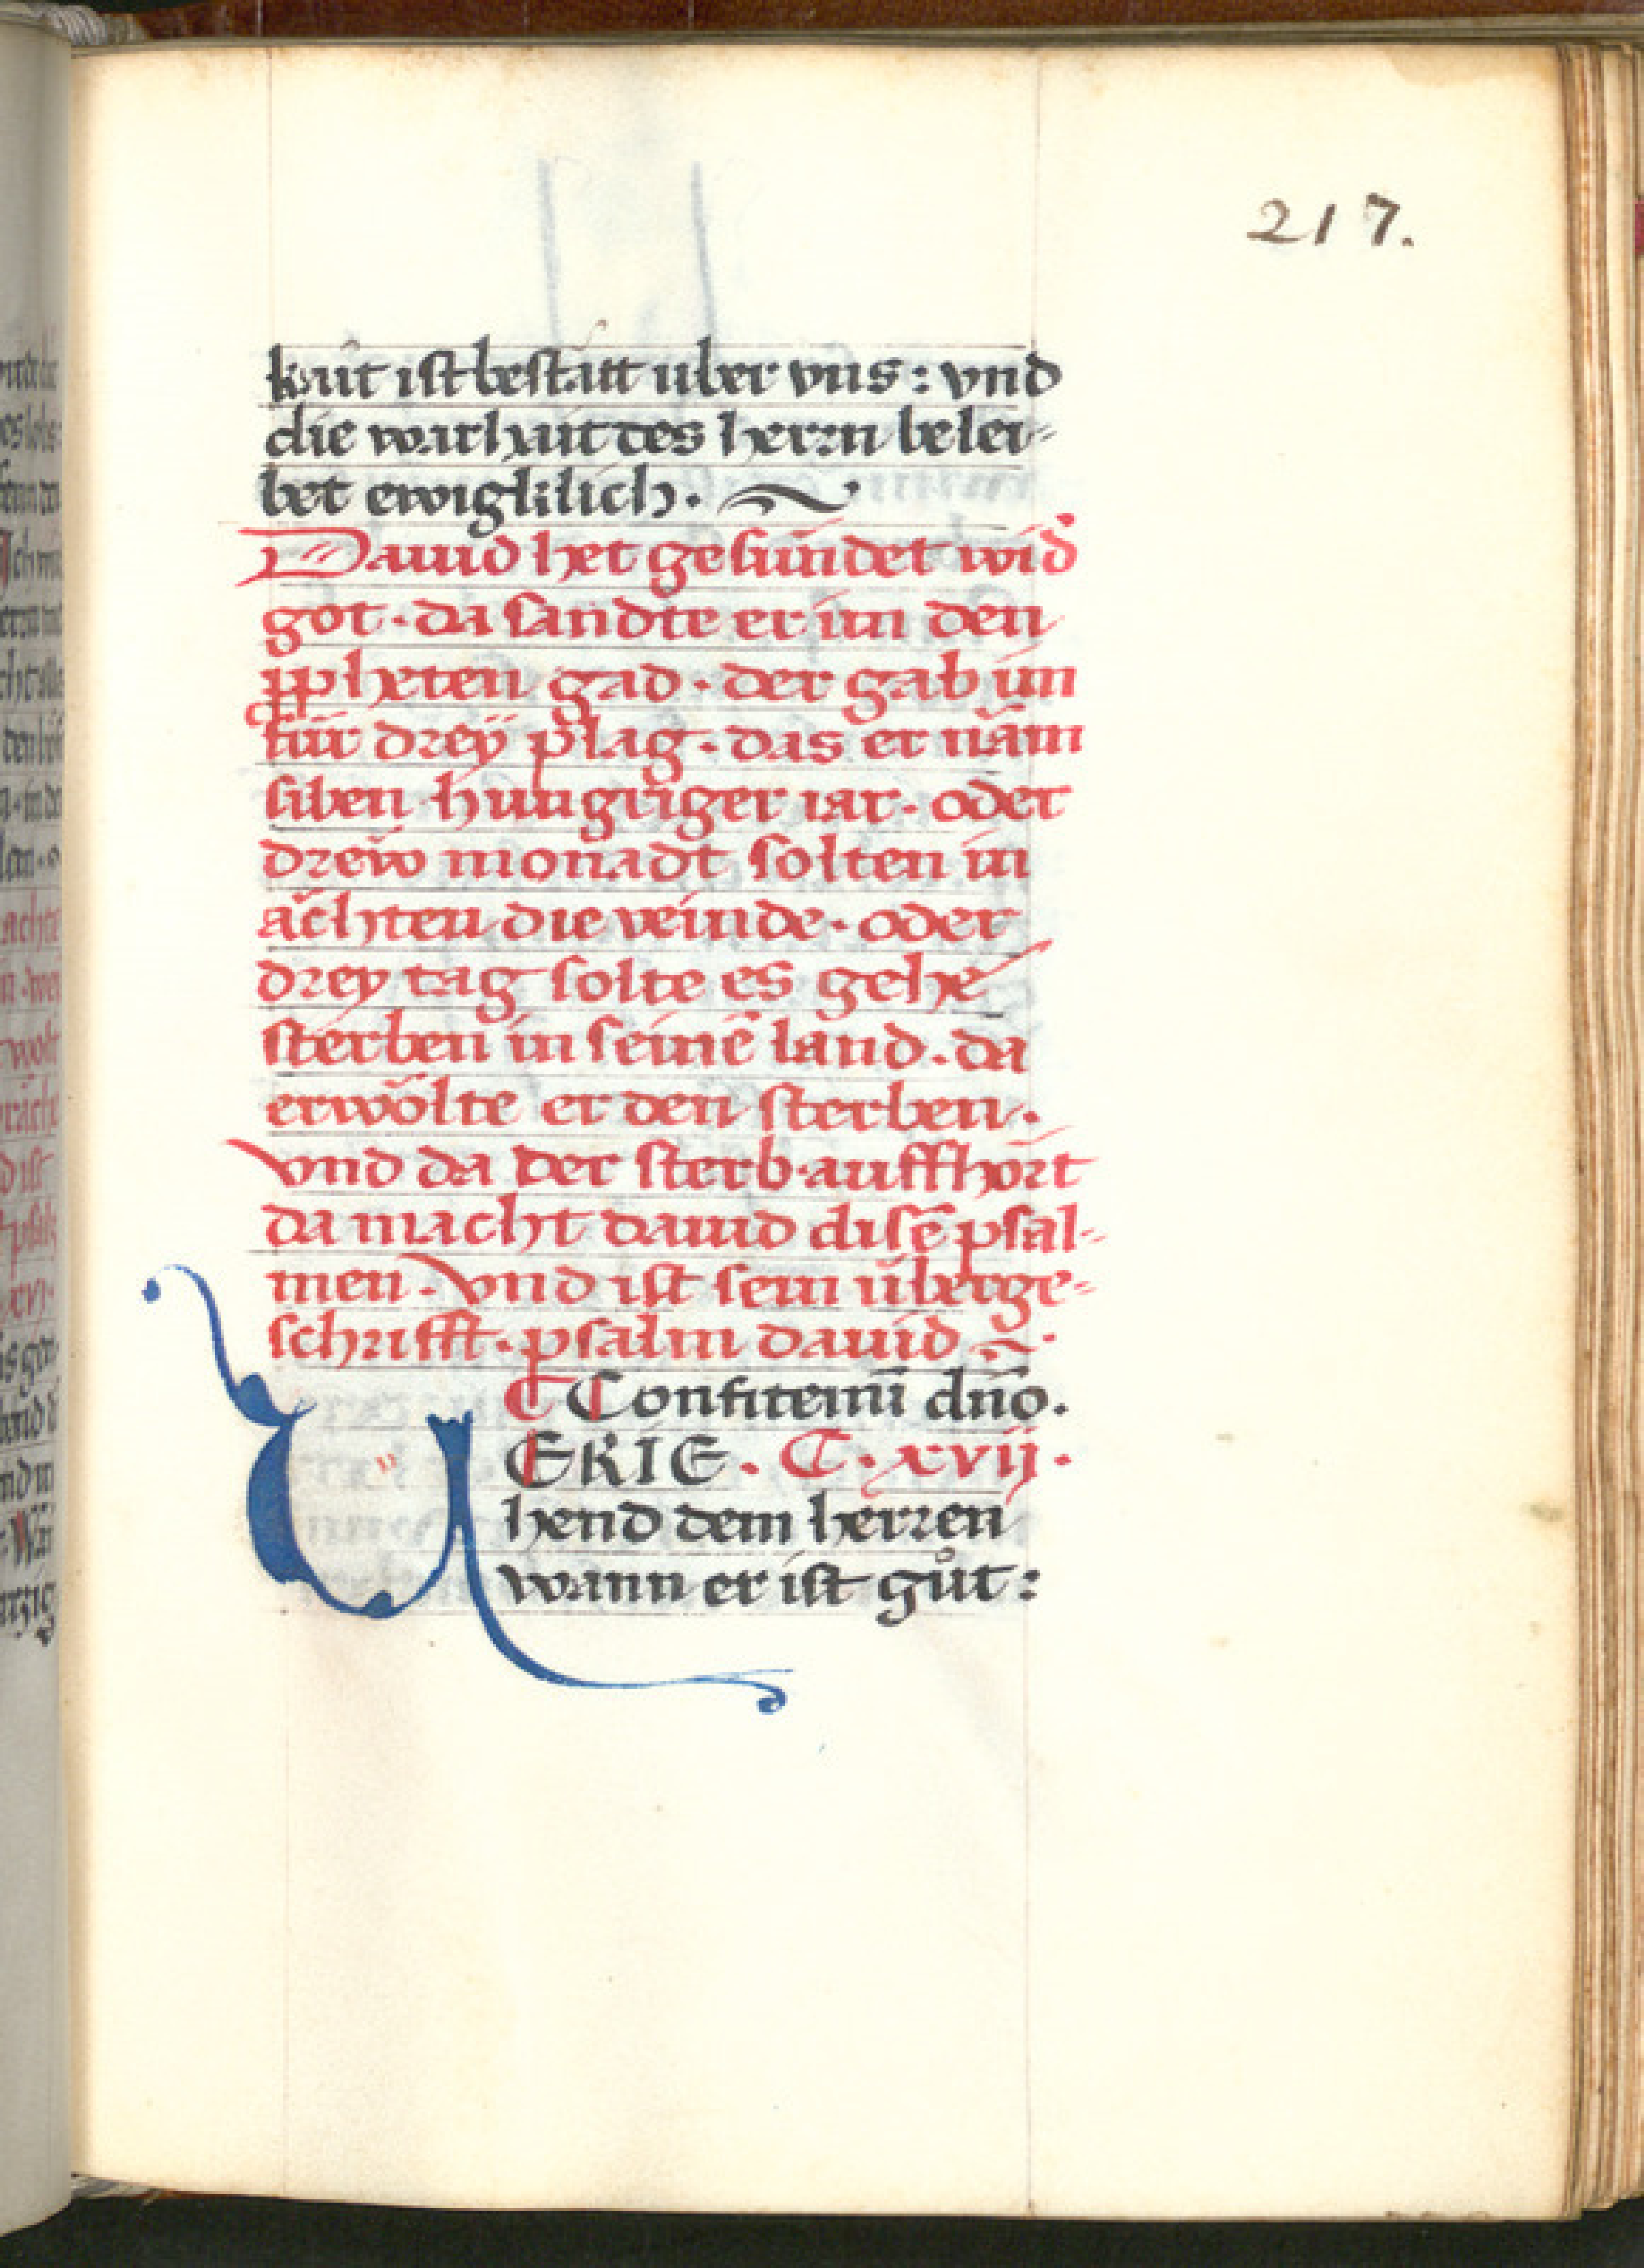 217.
kait ist bestätt uber vns : vnd
die warhait des herrn belei-
bet ewigklich .
Dauid het gesündet wid̾
got · da sandte er im den
ꝓpheten gad · der gab im
für dreÿ plag · das er näm
siben hungriger iar · oder
drew̎ monadt solten in
ächten die veinde · oder
drey tag solte es gehe
sterben in seinē land · da
erwölte er den sterben ·
vnd da der sterb auffhört
da macht dauid disē psal-
men · vnd ist sein überge-
schrifft · psalm dauid
Confitemī dn̄o .
VERIE . C · xvij ·
hend dem herren
wann er ist gůt :